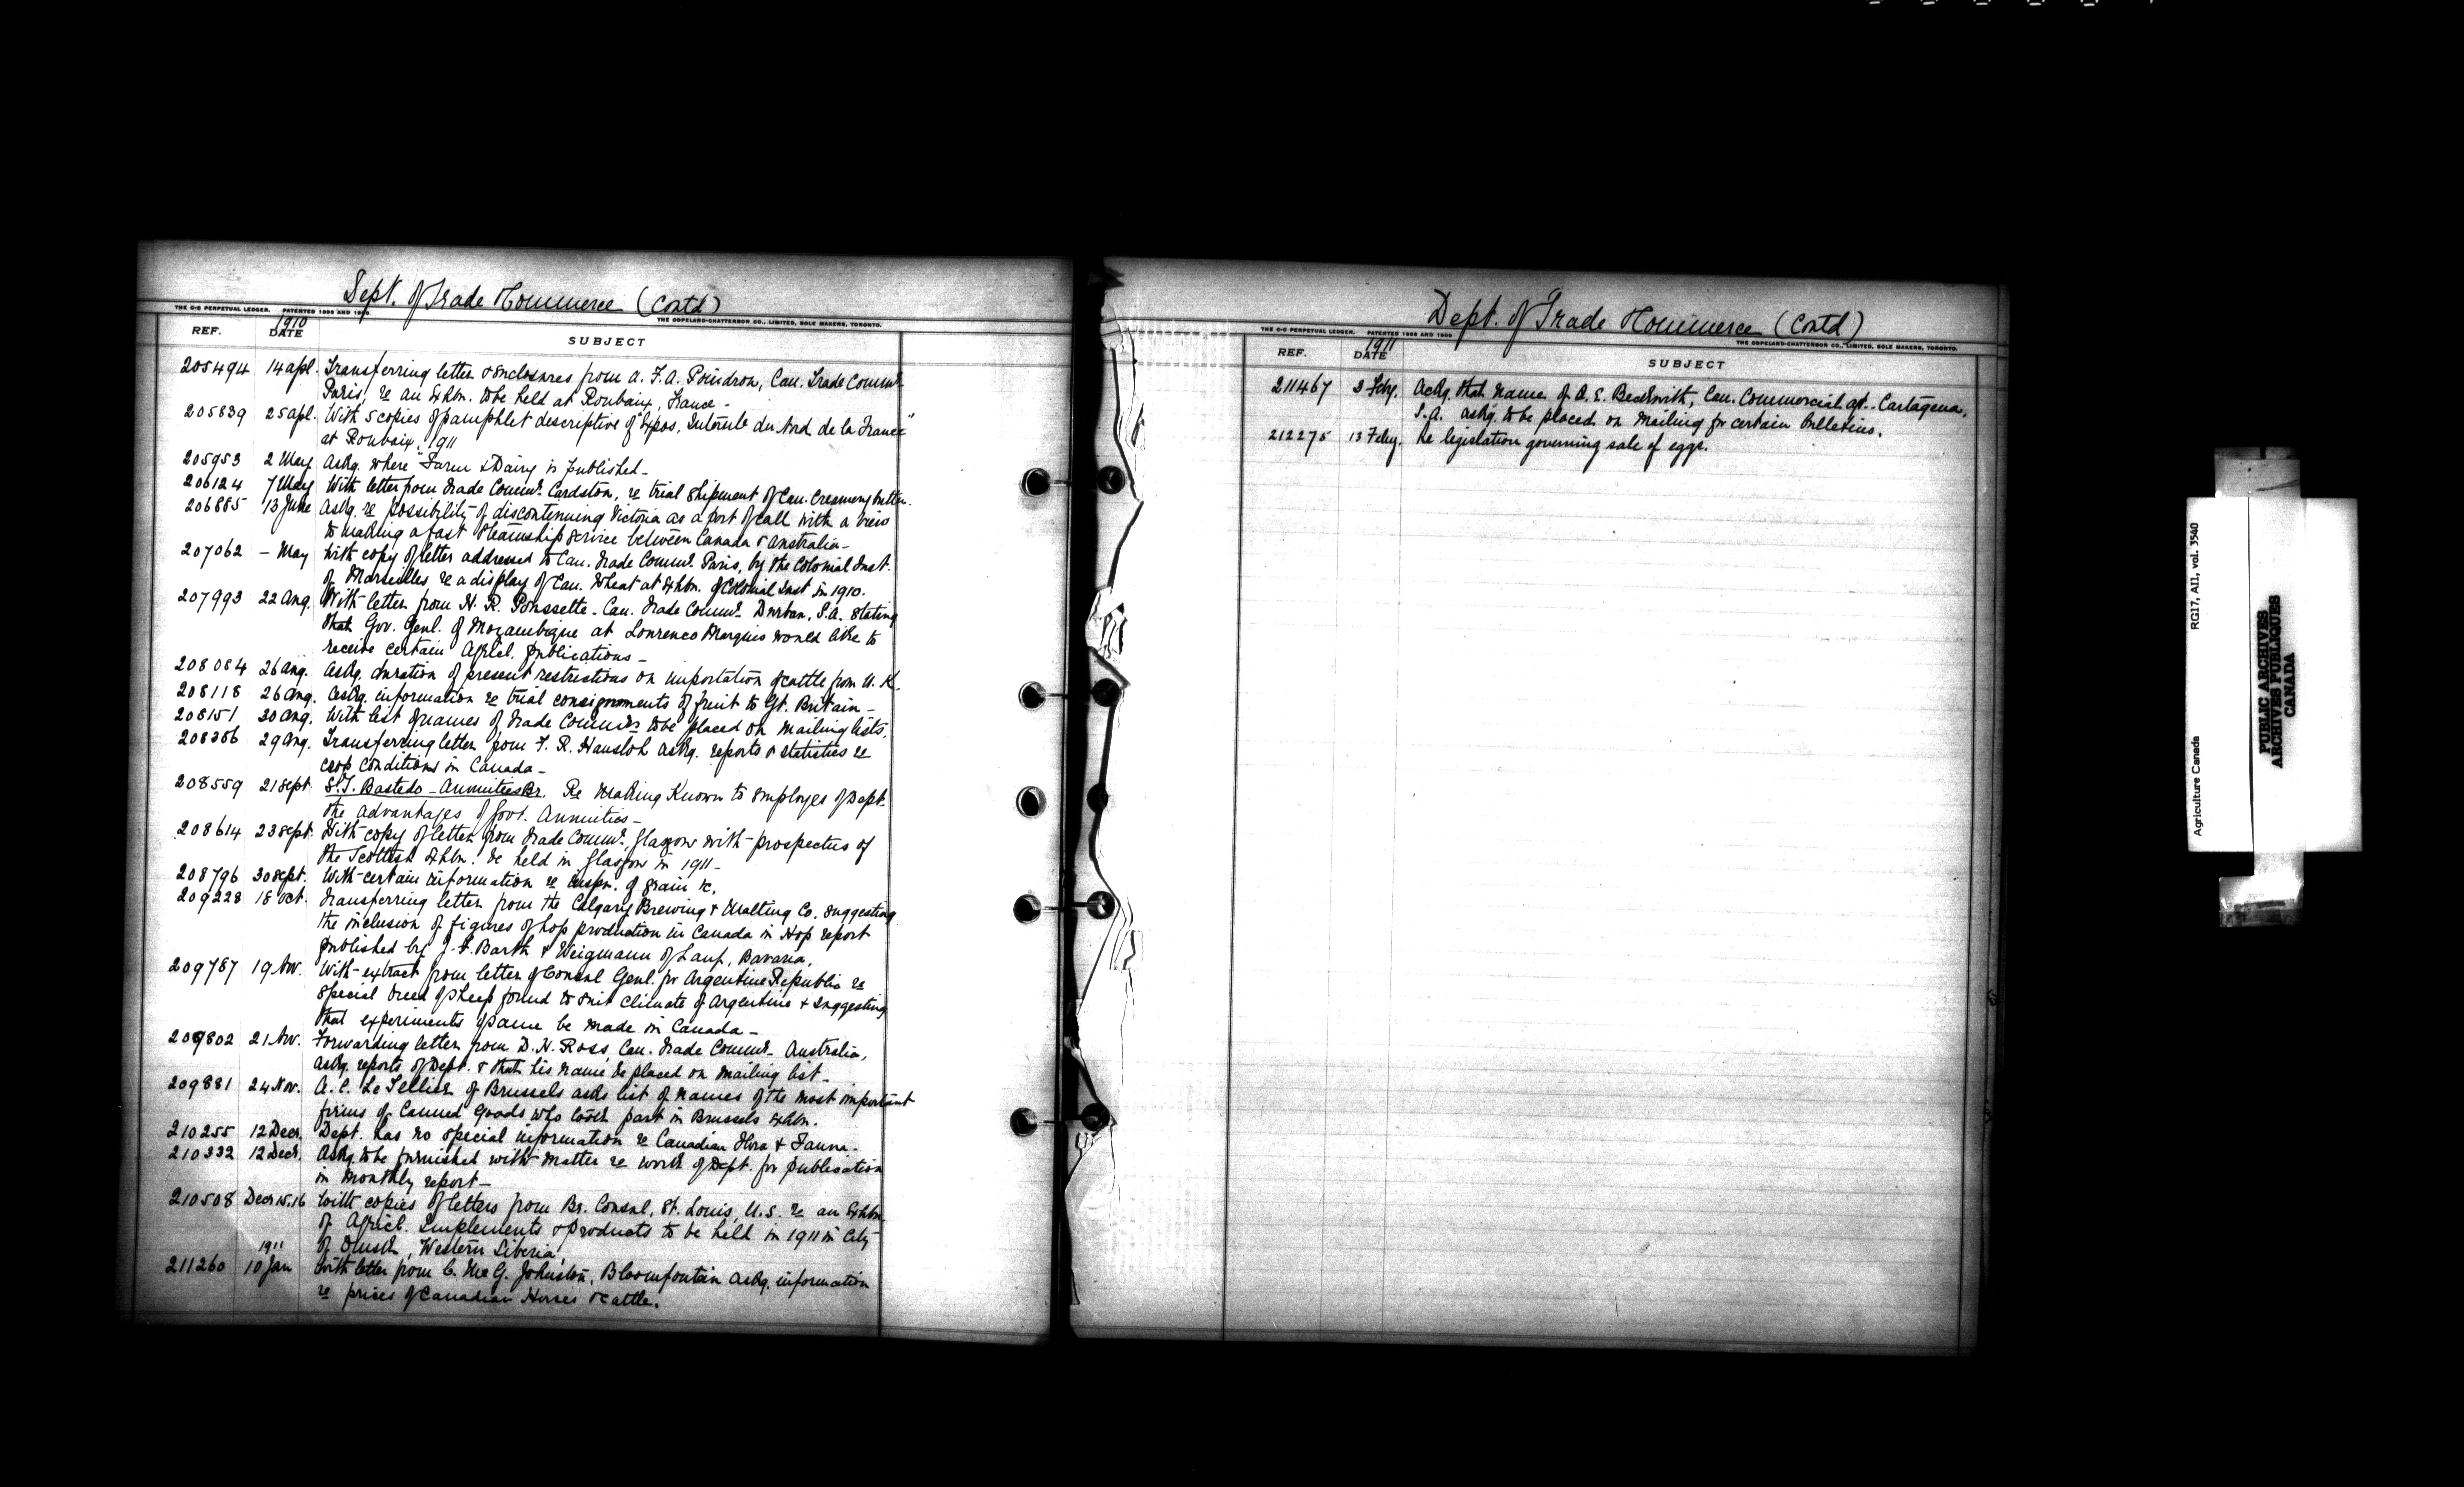 Dept. of Trade & Commerce (Contd)
THE C-C PERPETUAL LEDGER. PATENTED 1896 AND 1899
THE COPELAND-CHATTERSON CO., LIMITED, SOLE MAKERS, TORONTO.
REF. 1910 DATE SUBJECT
205494 14 apl. Transferring letter & enclosures from A. F. A. Poindron, Can. Trade Commr.
Paris, re an Exhbn. to be held at Roubaix, France -
205839 25 apl. With 5 copies of pamphlet descriptive of "Expos. du Nord de la France"
at Roubaix. 1911
205953 2 May Askg. where "Farm & Dairy is published -
206124 7 May With letter from Trade Commr. re trial shipment of Can. Creamery butter.
206885 13 June Askg. re possibility of discontinuing Victoria as a port of call with a view
to making a fast Steamship Service between Canada & Australia -
207062 - May With copy of letter addressed to Can. Trade Commr. Paris, by the Colonial Inst.
of Marseilles re a display of Can. Wheat at Exhbn. of Colonial Inst in 1910.
207993 22 Aug. With letter from H. R. Poussette - Can. Trade Commr. Durban, S.A. stating
that Gov. Genl. of Mozambique at Lourenco Marquis would like to
receive certain Agricl. publications -
208084 26 aug. Askg. duration of present restrictions on importation of cattle from U.K.
208118 26 aug. Askg. information re trial consignments of fruit to Gt. Britain -
208151 30 aug. With list of names of Trade Commrs. to be placed on mailing lists.
208386 29 aug. Transferring letter from F. R. Hausloh askg. reports & statistics re
crop conditions in Canada -
208559 21 Sept S.T. Bastedo - Annuities Br. Re making Known to employes of Dept.
the advantages of Govt. Annuities -
208614 23 Sept. With copy of letter from Trade Commr. Glasgow with prospectus of
the Scottish Exhbn. be held in Glasgow in 1911 -
208796 30 Sept. With certain information re inspn. of grain &c.
209228 18 Oct. Transferring letter from the Calgary Brewing & Malting Co. suggesting
the inclusion of figures of hop production in Canada in Hop report
published by J. F. Barth & Weigmann of Lauf, Bavaria,
209787 19 Nov. With extract from letter of Consul Genl. for Argentine Republic re
special breed of sheep found to suit climate of Argentine & suggesting
that experiments of same be made in Canada -
209802 21 Nov. Forwarding letter from D. H. Ross, Can. Trade Commr. Australia,
askg. reports of Dept. & that his name be placed on mailing list -
209881 24 Nov. A. C. Le Tellier of Brussels asks list of names of the most important
firms of Canned Goods who took part in Brussels Exhbn.
210255 12 Decr. Dept. has no special information re Canadian Flora & Fauna -
210332 12 Decr. Askg. to be furnished with matter re work of Dept. for publication
in monthly report -
210508 Decr 15.16 With copies of letters from Br. Consul, St. Louis, U.S. re an Exhbn.
of Agricl. Implements & Products to be held in 1911 in City
of Omsk, Western Siberia,
1911
211260 10 Jan With letter from C. McG. Johnston, Bloemfontein askg. information
re prices of Canadian Horses & Cattle.
Dept. of Trade & Commerce (Contd)
THE C-C PERPETUAL LEDGER. PATENTED 1896 AND 1899
THE COPELAND-CHATTERSON CO., LIMITED, SOLE MAKERS, TORONTO.
REF. 1911 DATE SUBJECT
211467 3 Feby. Askg. that name of A. E. Beckwith, Can. Commercial agt. Cartagena,
S.A. askg. to be placed on mailing for certain Bulletins.
212275 13 Feby. Re legislation governing sale of eggs.
Agriculture Canada RG17, AII, vol. 3540
PUBLIC ARCHIVES
ARCHIVES PUBLIQUES
CANADA